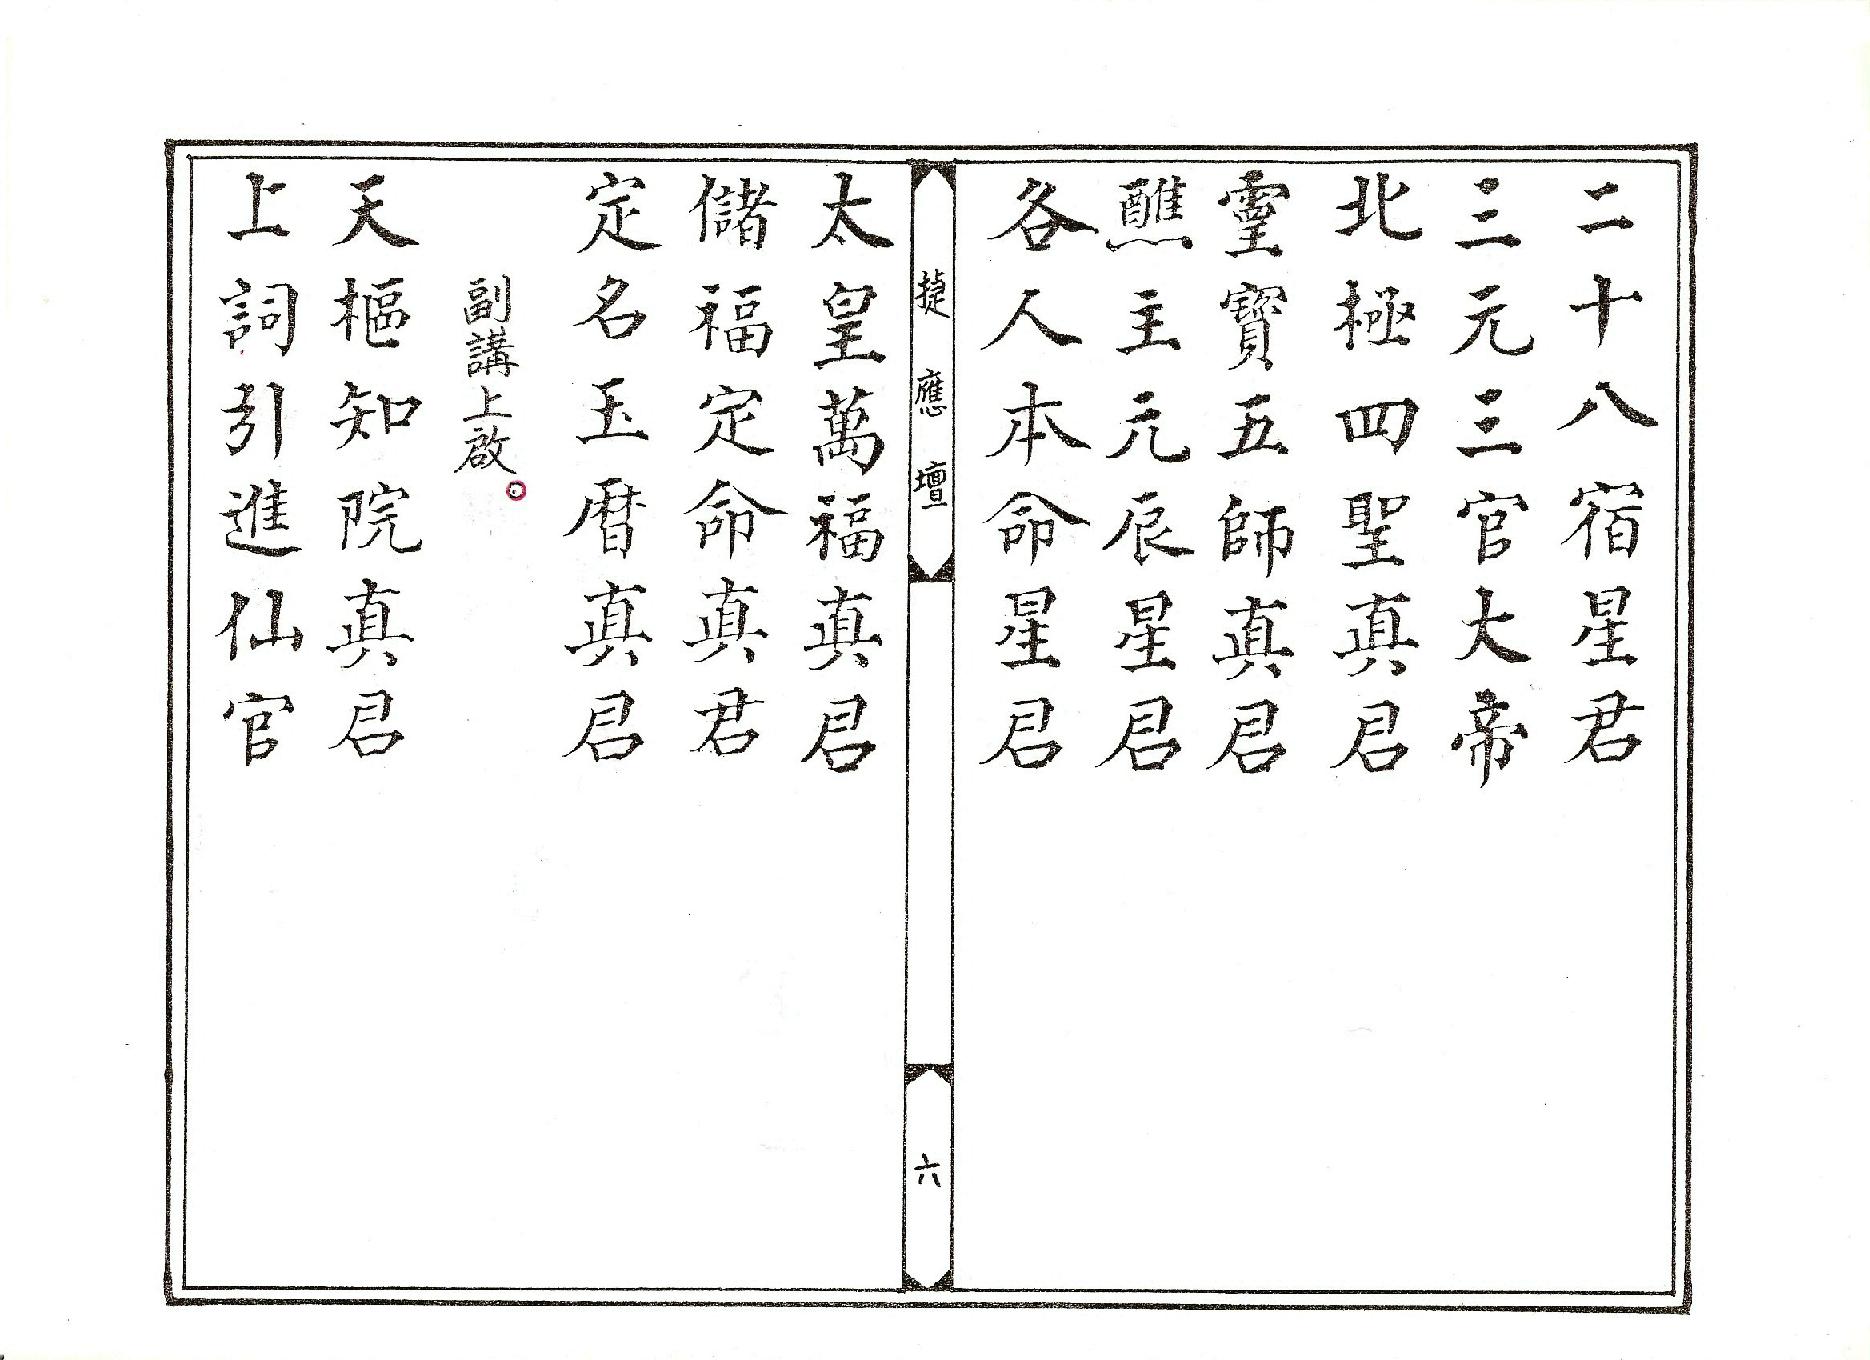 二十八宿星君
三元三官大帝
北極四聖真君
靈寶五師真君
醮主元辰星君
各人本命星君
捷應壇
六
太皇萬福真君
儲福定命真君
定名玉曆真君
副講上啟。
天樞知院真君
上詞引進仙官